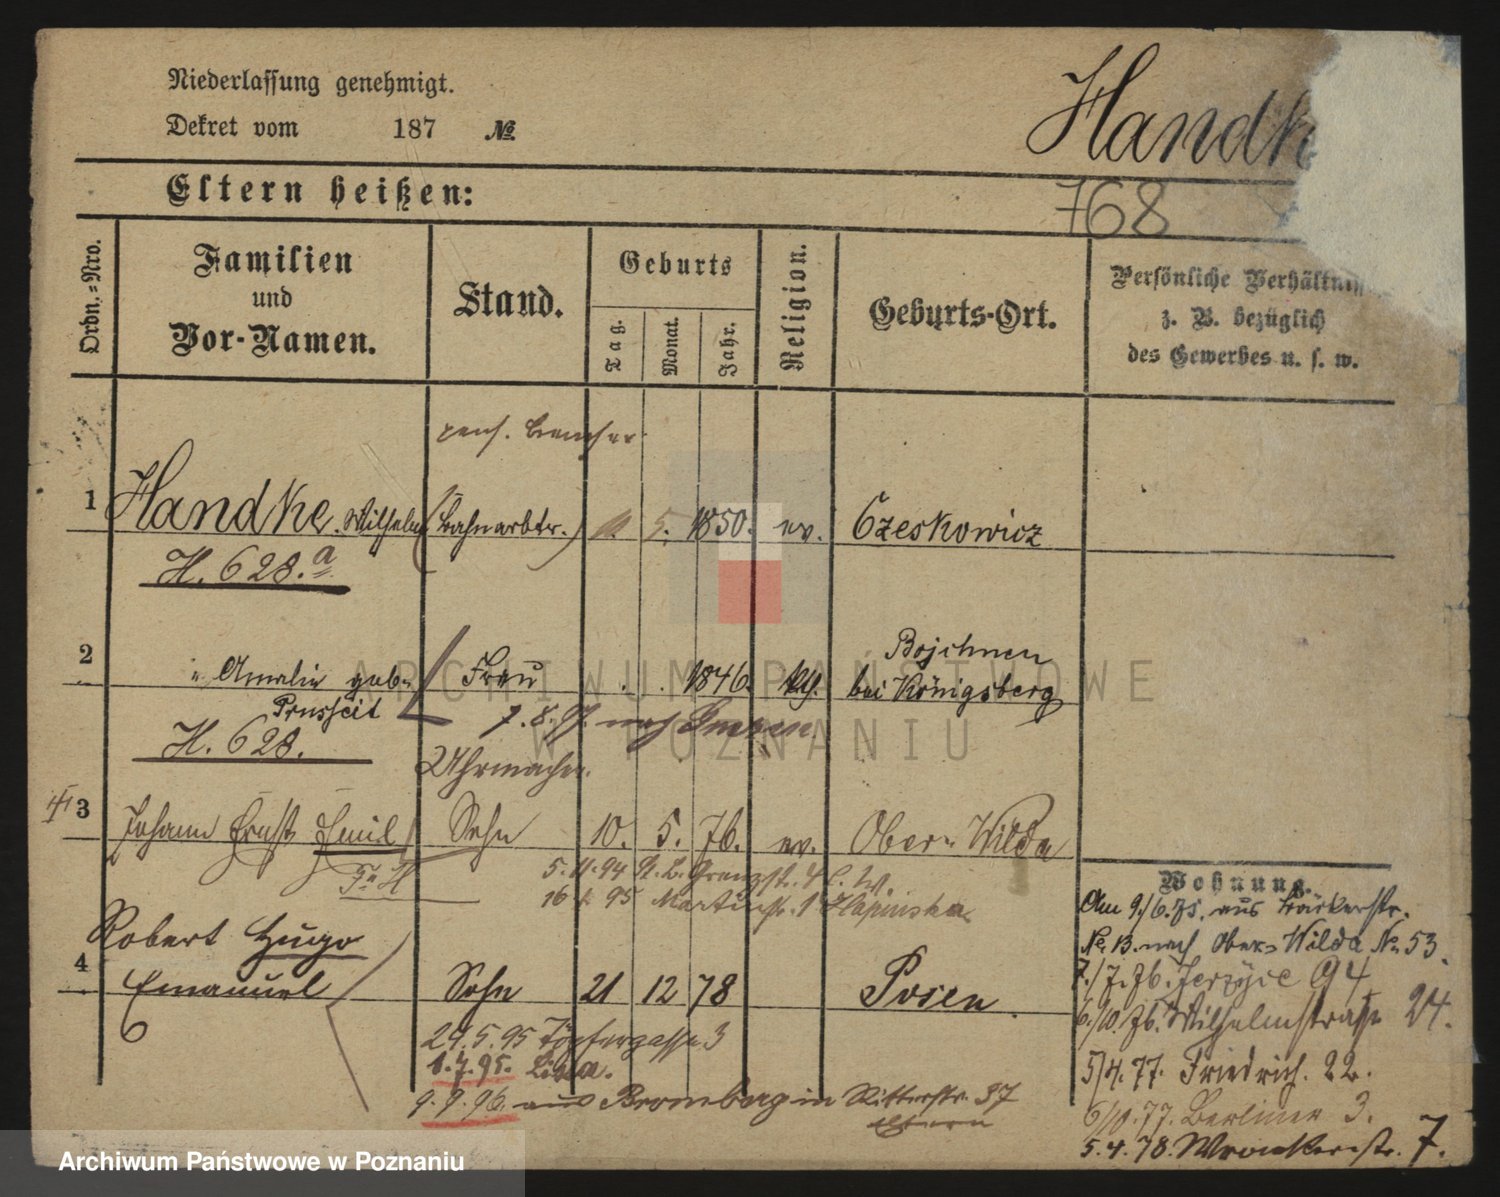 Niederlassung genehmigt.
Dekret vom 187 №
Handk
768
Eltern heißen:
Ordn.-Nro.
Familien
und
Vor-Namen.
Stand.
Geburts
Tag.
Monat.
Jahr.
Religion.
Geburts-Ort.
Persönliche Verhältniss
z. B. bezüglich
des Gewerbes u. s. w.
1 Handke. Wilhelm (Bahnarbtr.) 5. 1850. ev. Czeskowicz
H. 628.a
2 " Amalie geb. Frau 1846. Bojehnen
bei Königsberg
Prusseit
H. 628.
7. 8. 97. nach
Uhrmacher.
3 Johann Ernst Emil Sohn 10. 5. 76. ev. Ober-Wilda
5. 11. 94 Grenzstr. 4
16 95 Martinstr. 1
Robert Hugo
4 Emanuel Sohn 21 12 78 Posen.
6
29. 5. 95 Töpfergasse 3
1. 7. 95. Lissa.
9. 9. 96. aus Bromberg in Ritterstr. 37
Eltern
Wohnung.
Am 9./6. 75. aus Bäckerstr.
No. 13. nach Ober-Wilda No. 53.
7./7. 76. Jerzyce 94
6./10. 76. Wilhelmstraße 24.
5/4. 77. Friedrich. 22.
6/10. 77. Berliner 3.
5. 4. 78. Wronkerstr. 7.
ARCHIWUM PAŃSTWOWE
W POZNANIU
Archiwum Państwowe w Poznaniu